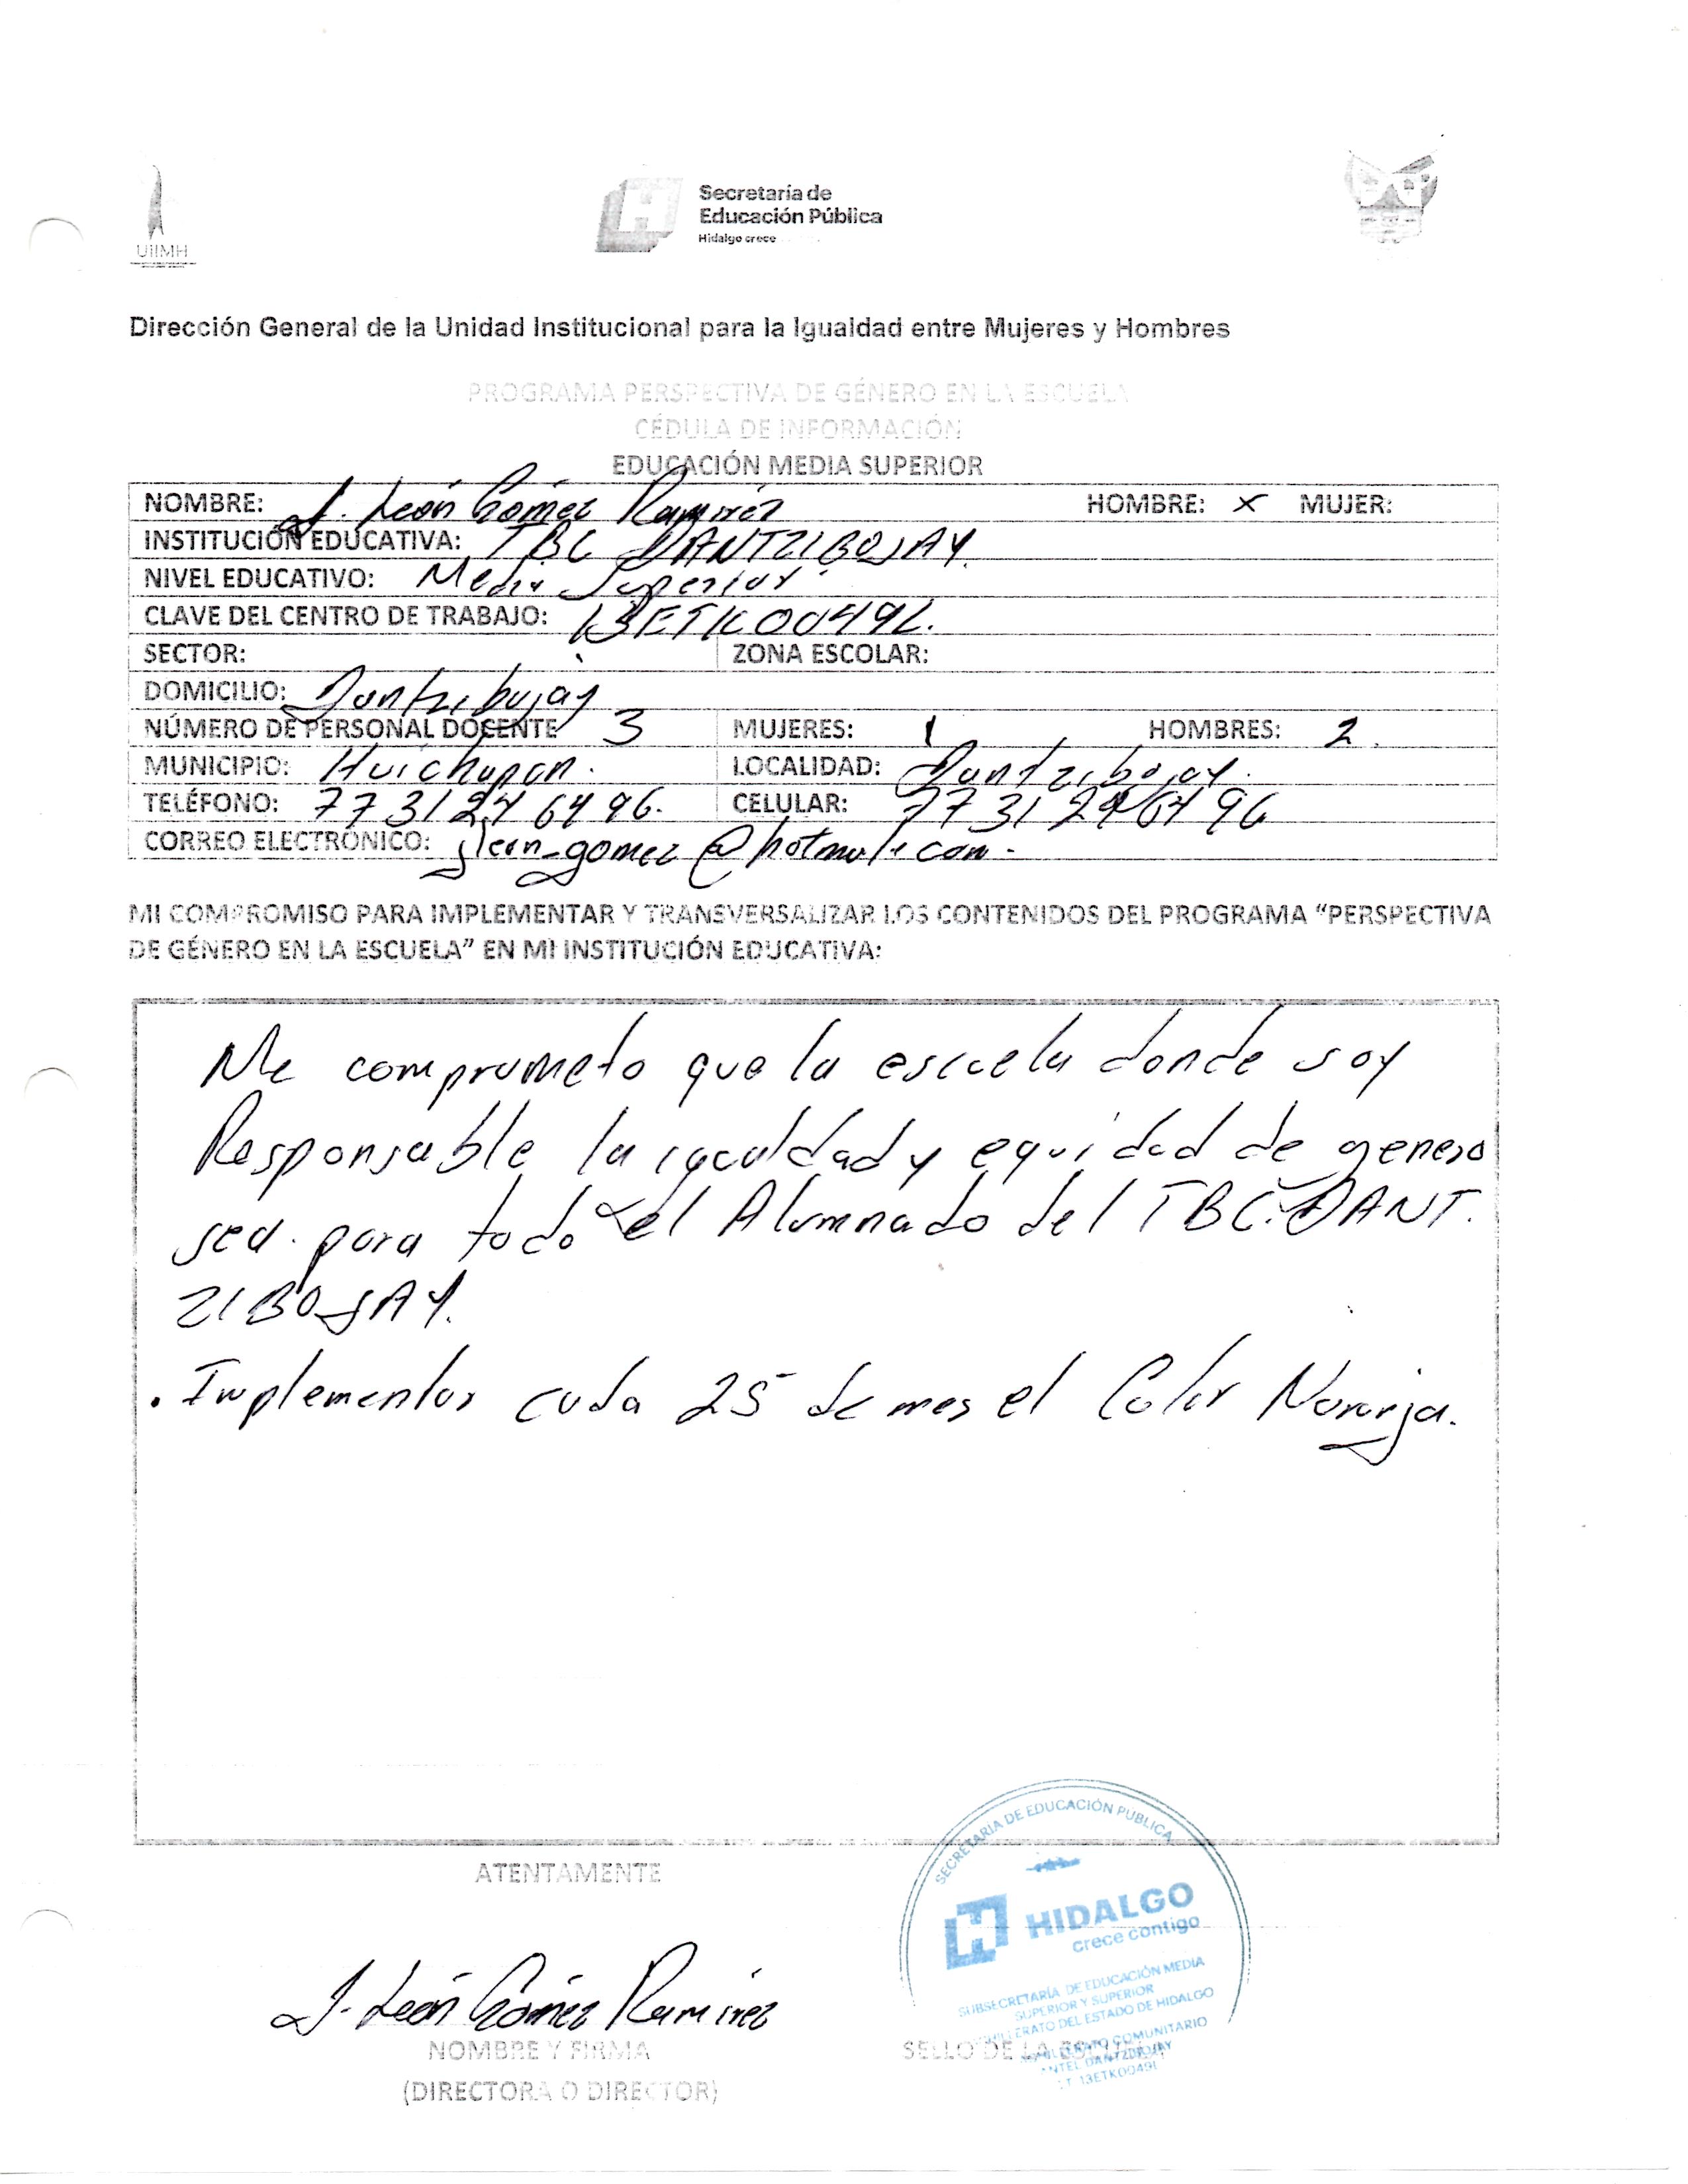 UIIMH
Secretaría de
Educación Pública
Hidalgo crece
Dirección General de la Unidad Institucional para la Igualdad entre Mujeres y Hombres
PROGRAMA PERSPECTIVA DE GÉNERO EN LA ESCUELA
CÉDULA DE INFORMACIÓN
EDUCACIÓN MEDIA SUPERIOR
NOMBRE: J. León Gómez Ramírez HOMBRE: X MUJER:
INSTITUCIÓN EDUCATIVA: TBC DANTZIBOJAY.
NIVEL EDUCATIVO: Media Superior.
CLAVE DEL CENTRO DE TRABAJO: 13ETK0049L.
SECTOR: ZONA ESCOLAR:
DOMICILIO: Dantzibojay
NÚMERO DE PERSONAL DOCENTE 3 MUJERES: 1 HOMBRES: 2.
MUNICIPIO: Huichapan. LOCALIDAD: Dantzibojay.
TELÉFONO: 7731246496. CELULAR: 7731246496
CORREO ELECTRÓNICO: jleon_gomez@hotmail.com.
MI COMPROMISO PARA IMPLEMENTAR Y TRANSVERSALIZAR LOS CONTENIDOS DEL PROGRAMA “PERSPECTIVA
DE GÉNERO EN LA ESCUELA” EN MI INSTITUCIÓN EDUCATIVA:
Me comprometo que la escuela donde soy
Responsable la igualdad y equidad de genero
sea. para todo el Alumnado del TBC. DANT.
ZIBOJAY.
. Implementar cada 25 de mes el Color Naranja.
ATENTAMENTE
J. León Gómez Ramírez
NOMBRE Y FIRMA
(DIRECTORA O DIRECTOR)
SECRETARIA DE EDUCACIÓN PUBLICA
HIDALGO
crece contigo
SUBSECRETARÍA DE EDUCACIÓN MEDIA
SUPERIOR Y SUPERIOR
DEL ESTADO DE HIDALGO
COMUNITARIO
DANTZIBOJAY
13ETK0049L
SELLO DE LA ESCUELA